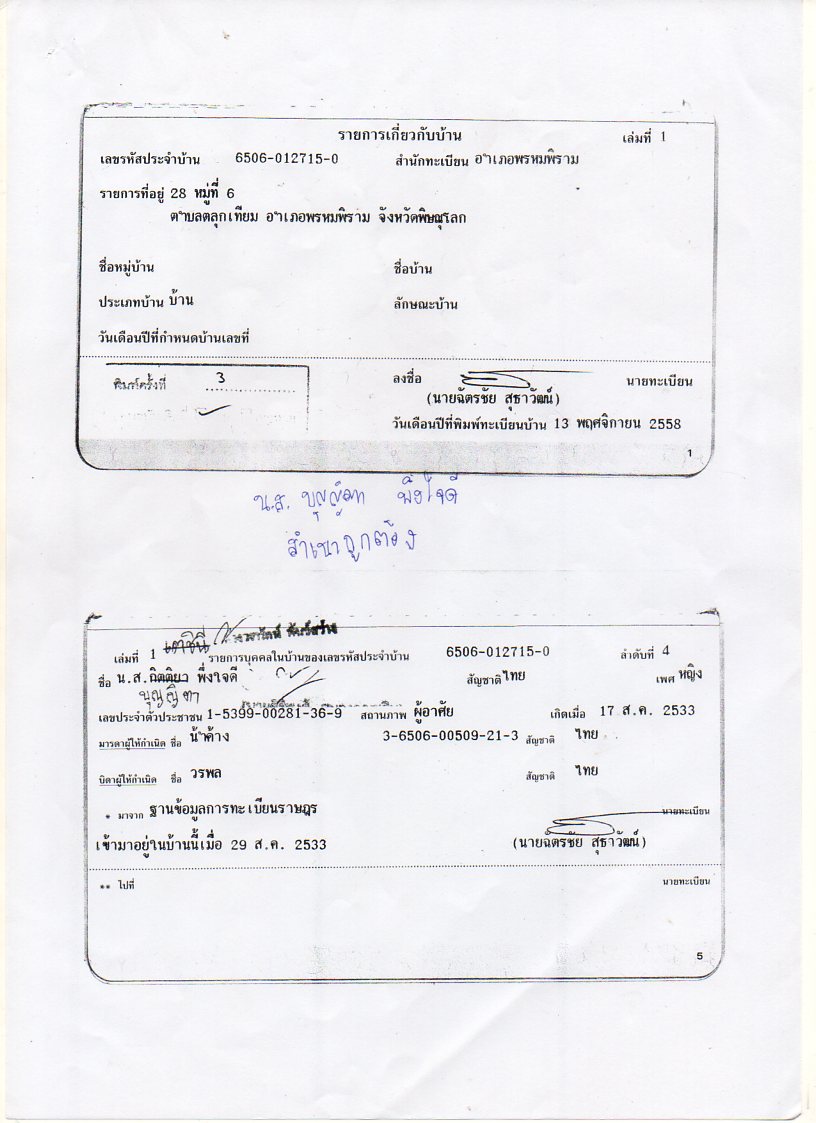 รายการเกี่ยวกับบ้าน เล่มที่ 1
เลขรหัสประจำบ้าน 6506-012715-0 สำนักทะเบียน อำเภอพรหมพิราม
รายการที่อยู่ 28 หมู่ที่ 6
ตำบลตลุกเทียม อำเภอพรหมพิราม จังหวัดพิษณุโลก
ชื่อหมู่บ้าน ชื่อบ้าน
ประเภทบ้าน บ้าน ลักษณะบ้าน
วันเดือนปีที่กำหนดบ้านเลขที่
พิมพ์ครั้งที่ 3 ลงชื่อ นายทะเบียน
(นายฉัตรชัย สุธาวัฒน์)
วันเดือนปีที่พิมพ์ทะเบียนบ้าน 13 พฤศจิกายน 2558
1
น.ส. พึ่งใจดี
สำเนาถูกต้อง
เล่มที่ 1 รายการบุคคลในบ้านของเลขรหัสประจำบ้าน 6506-012715-0 ลำดับที่ 4
ชื่อ น.ส.กิตติยา พึ่งใจดี สัญชาติ ไทย เพศ หญิง
เลขประจำตัวประชาชน 1-5399-00281-36-9 สถานภาพ ผู้อาศัย เกิดเมื่อ 17 ส.ค. 2533
มารดาผู้ให้กำเนิด ชื่อ น้ำค้าง 3-6506-00509-21-3 สัญชาติ ไทย
บิดาผู้ให้กำเนิด ชื่อ วรพล สัญชาติ ไทย
* มาจาก ฐานข้อมูลการทะเบียนราษฎร นายทะเบียน
เข้ามาอยู่ในบ้านนี้เมื่อ 29 ส.ค. 2533 (นายฉัตรชัย สุธาวัฒน์)
** ไปที่ นายทะเบียน
5